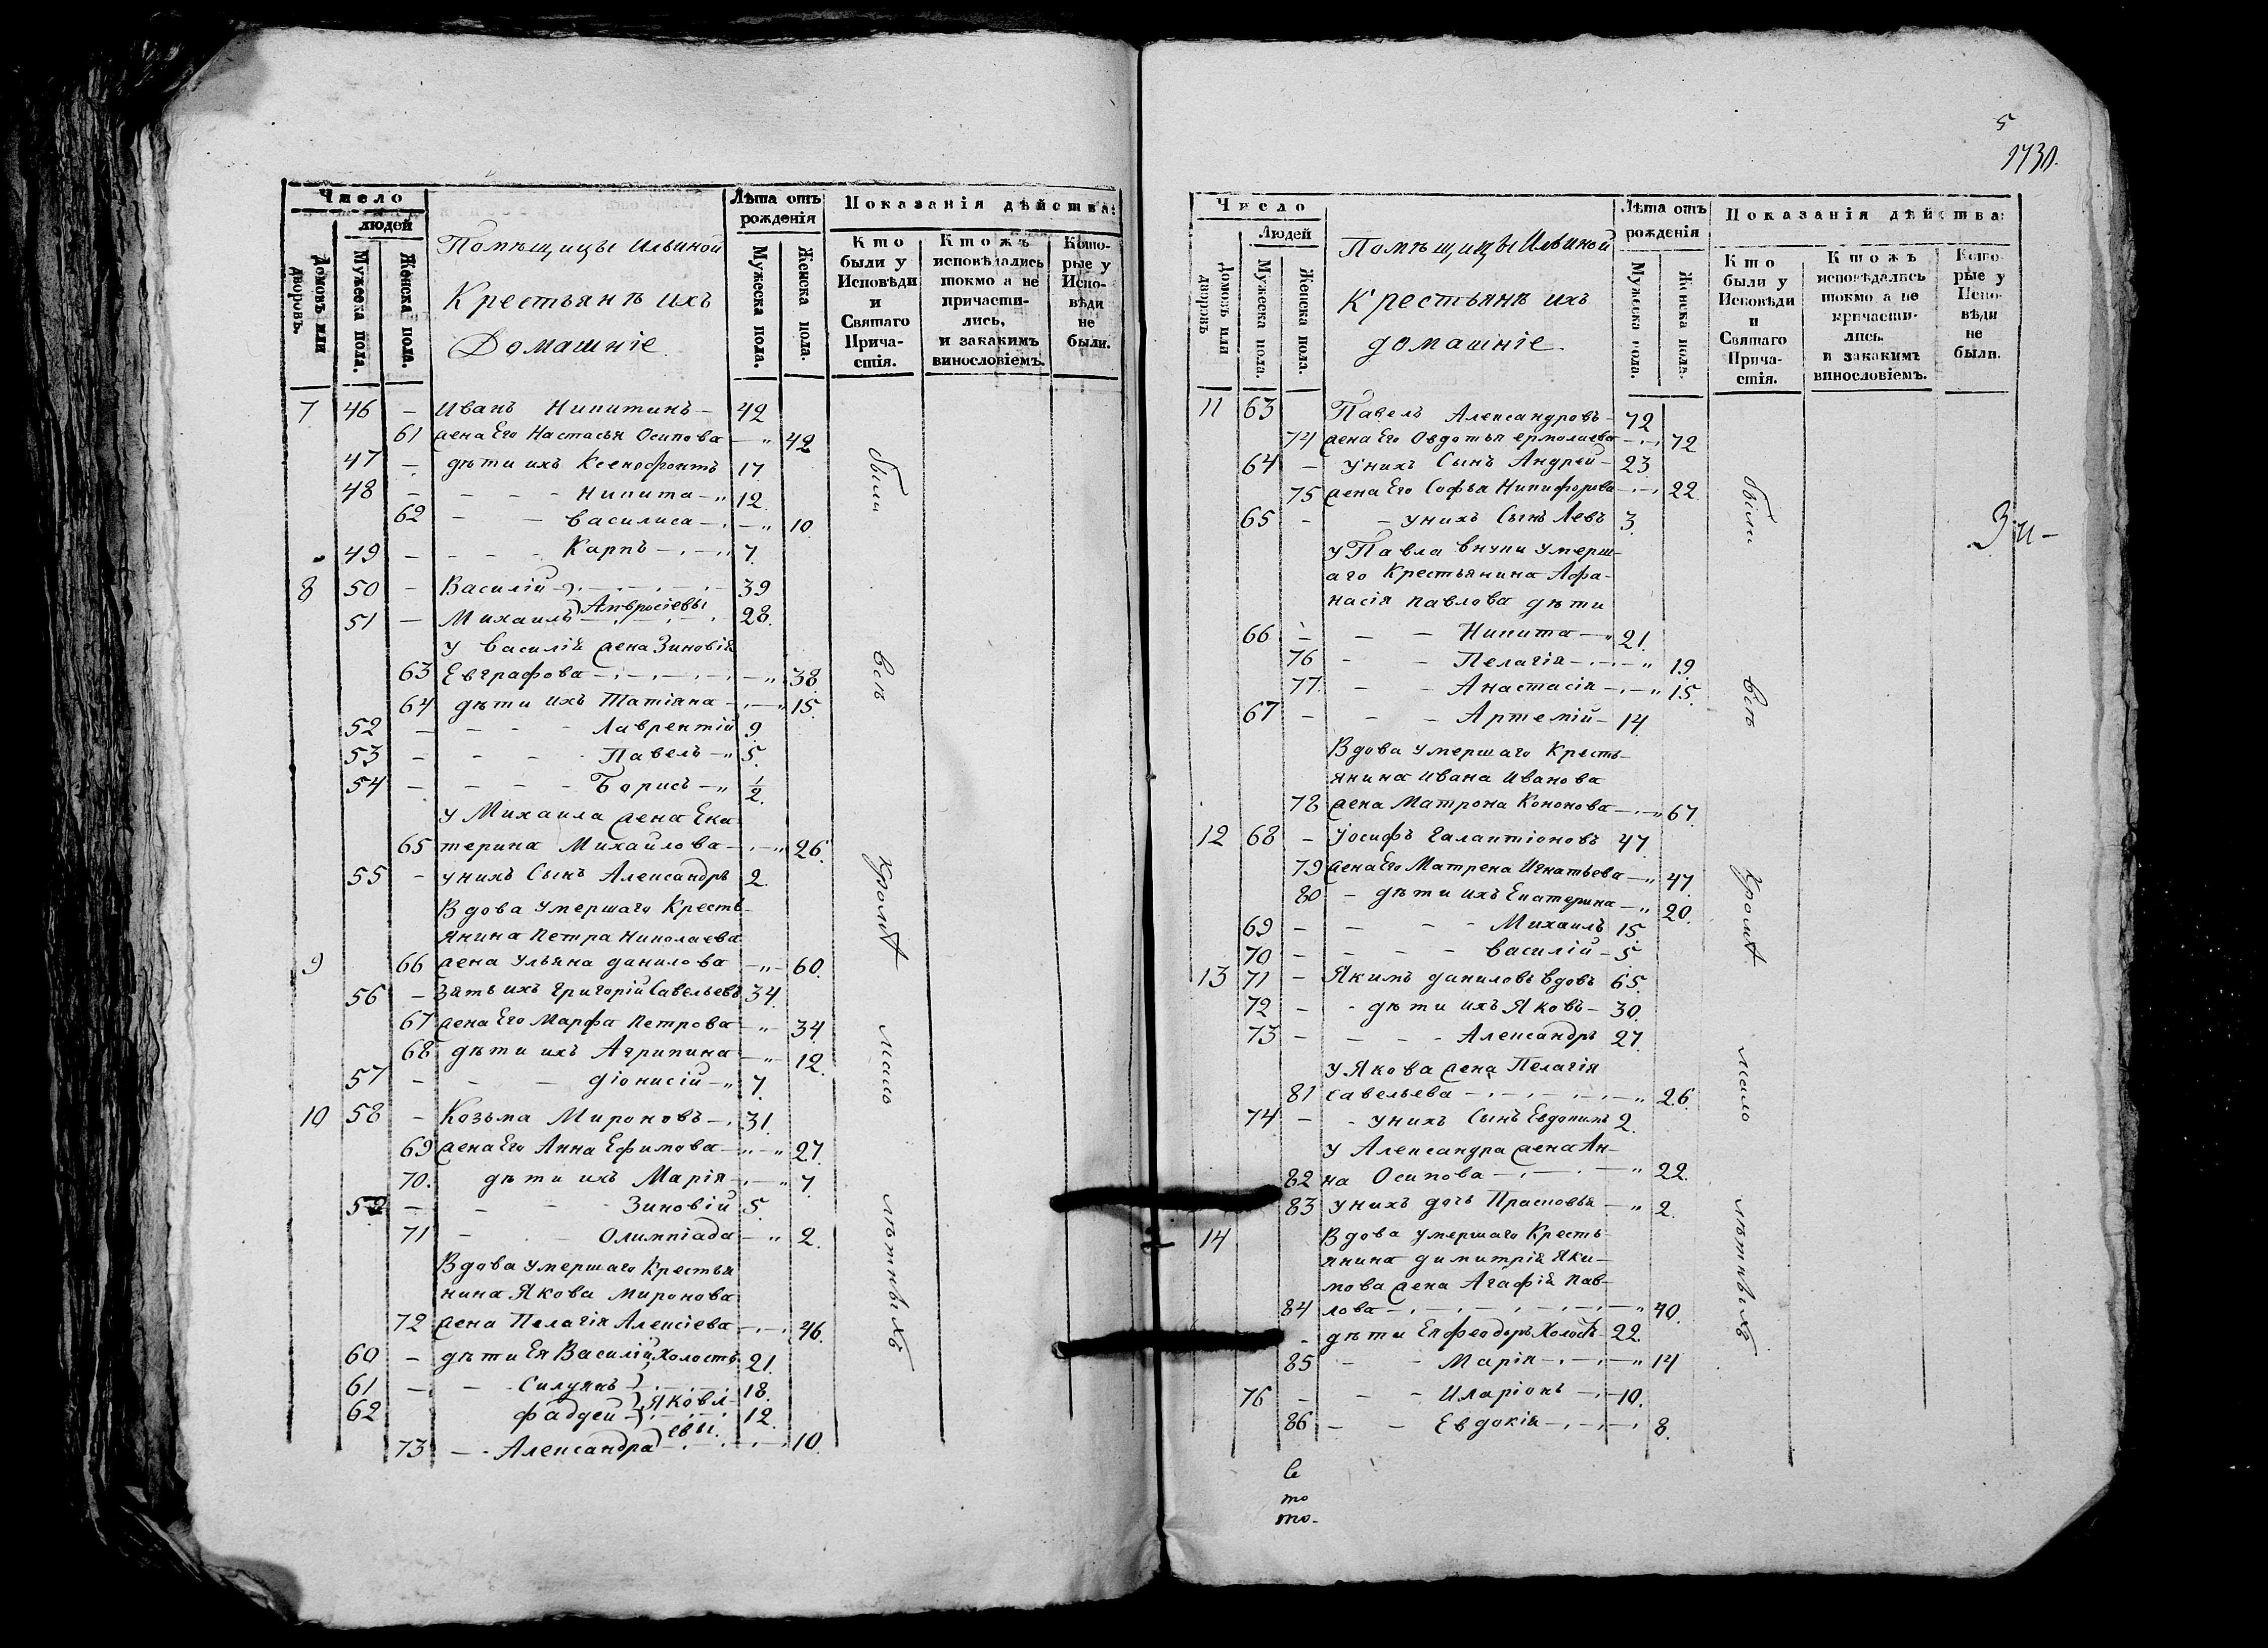 Число
людей
Домовъ или дворовъ.
Мужеска пола.
Женска пола.
Помѣщицы Ильиной
Крестьянѣ ихъ
Домашніе.
Лѣта отъ рожденія
Мужеска пола.
Женска пола.
Показанія дѣйства:
Кто были у Исповѣди и Святаго Прича-стія.
Ктожъ исповѣдались токмо а не причасти-лись, и закакимъ винословіемъ.
Кото-рые у Испо-вѣди не были.
7 46 – Иванъ Никитинъ – 42
61 жена Его Настасья Осипова – „ 42
47 – дѣти ихъ Ксенофонтъ 17.
48 – – – – Никита – „ 12.
62 – – Василиса – . – „ 10.
49 – – – – Карпъ – . – „ 7.
8 50 – Василій 39
51 – Михаилъ) Амвросіевы 28.
у Василія жена Зиновія
63 Евграфова – . – . – „ 38.
64 дѣти ихъ Татіяна – . – „ 15.
52 – – – – Лаврентій 9.
53 – – – – Павелъ – „ 5.
54 – – – – Борисъ – „ 1/2.
у Михаила жена Ека
65 терина Михайлова – . – „ 26.
55 – унихъ Сынъ Александръ 2.
Вдова Умершаго Кресть-
янина Петра Николаева
9 66 жена Ульяна Данилова – „ – 60.
56 – Зять ихъ Григорій Савельевъ 34.
67 жена Его Марфа Петрова – „ – 34.
68 дѣти ихъ Агрипина – „ – 12.
57 – – – Діонисій – „ 7.
10 58 – Козьма Мироновъ – . 31.
69 жена Его Анна Ефимова – „ – „ 27.
70. дѣти ихъ Марія – . – „ 7.
59 – – – Зиновій 5.
71 – – Олимпіада – „ 2.
Вдова умершаго Крестья
нина Якова Миронова
72 жена Пелагія Алексіева – . – . 46.
60 – дѣти Ея Василій Холостъ 21.
61 – – Силуянъ) 18.
62 Фаддей) Яковл- 12.
евы.
73 – – Александра) – . – 10.
были
всѣ
кромѣ
мало
лѣтныхъ
5
1730.
Число
Людей
Домовъ или дворовъ
Мужеска пола.
Женска пола.
Помѣщицы Ильиной
Крестьянѣ ихъ
домашніе.
Лѣта отъ рожденія
Мужеска пола.
Женска пола.
Показанія дѣйства:
Кто были у Исповѣди и Святаго Прича-стія.
Ктожъ исповѣдались токмо а не причасти-лись. и закакимъ винословіемъ.
Кото-рые у Испо-вѣди не были.
11 63 Павелъ Александровъ – 72
74 жена Его Овдотья Ермолаева – . – . 72
64 – унихъ Сынъ Андрей – 23
75 жена Его Софья Никифорова – . – . 22.
65 – – унихъ Сынъ Левъ 3.
у Павла внуки Умерш-
аго Крестьянина Афа-
насія Павлова дѣти
66 – – – Никита – „ 21.
76 – – Пелагія – . – . – „ 19.
77. – – Анастасія – . – „ 15.
67 – – – Артемій – 14.
Вдова умершаго Кресть-
янина Ивана Иванова
78 жена Матрона Кононова – . – „ 67.
12 68 – Іосифъ Галактіоновъ 47.
79 жена Его Матрена Игнатьева – „ 47.
80 – дѣти ихъ Екатерина – „ 20.
69 – – – – Михаилъ 15.
70 – – – – Василій – 5.
13 71 – Якимъ Даниловъ Вдовъ 65.
72 – – дѣти ихъ Яковъ – 30.
73 – – – – Александръ 27.
у Якова жена Пелагія
81 Савельева – . – . – . – „ 26.
74 – – унихъ Сынъ Евдокимъ 2.
у Александра жена Ан-
82 на Осипова – . – . – „ 22.
83 унихъ дочь Прасковья – „ 2.
14 Вдова умершаго Кресть-
янина Димитрія Яки-
мова жена Агафія Пав-
84 лова – . – . – . – . – „ 40.
– дѣти Ея Феодоръ Холостъ 22.
85 – – Марія – . – . – „ 14
76 – – – Иларіонъ – . – 10.
86 – – Евдокія – . – . – . 8.
были
всѣ
кромѣ
мало
лѣтныхъ
то
то-